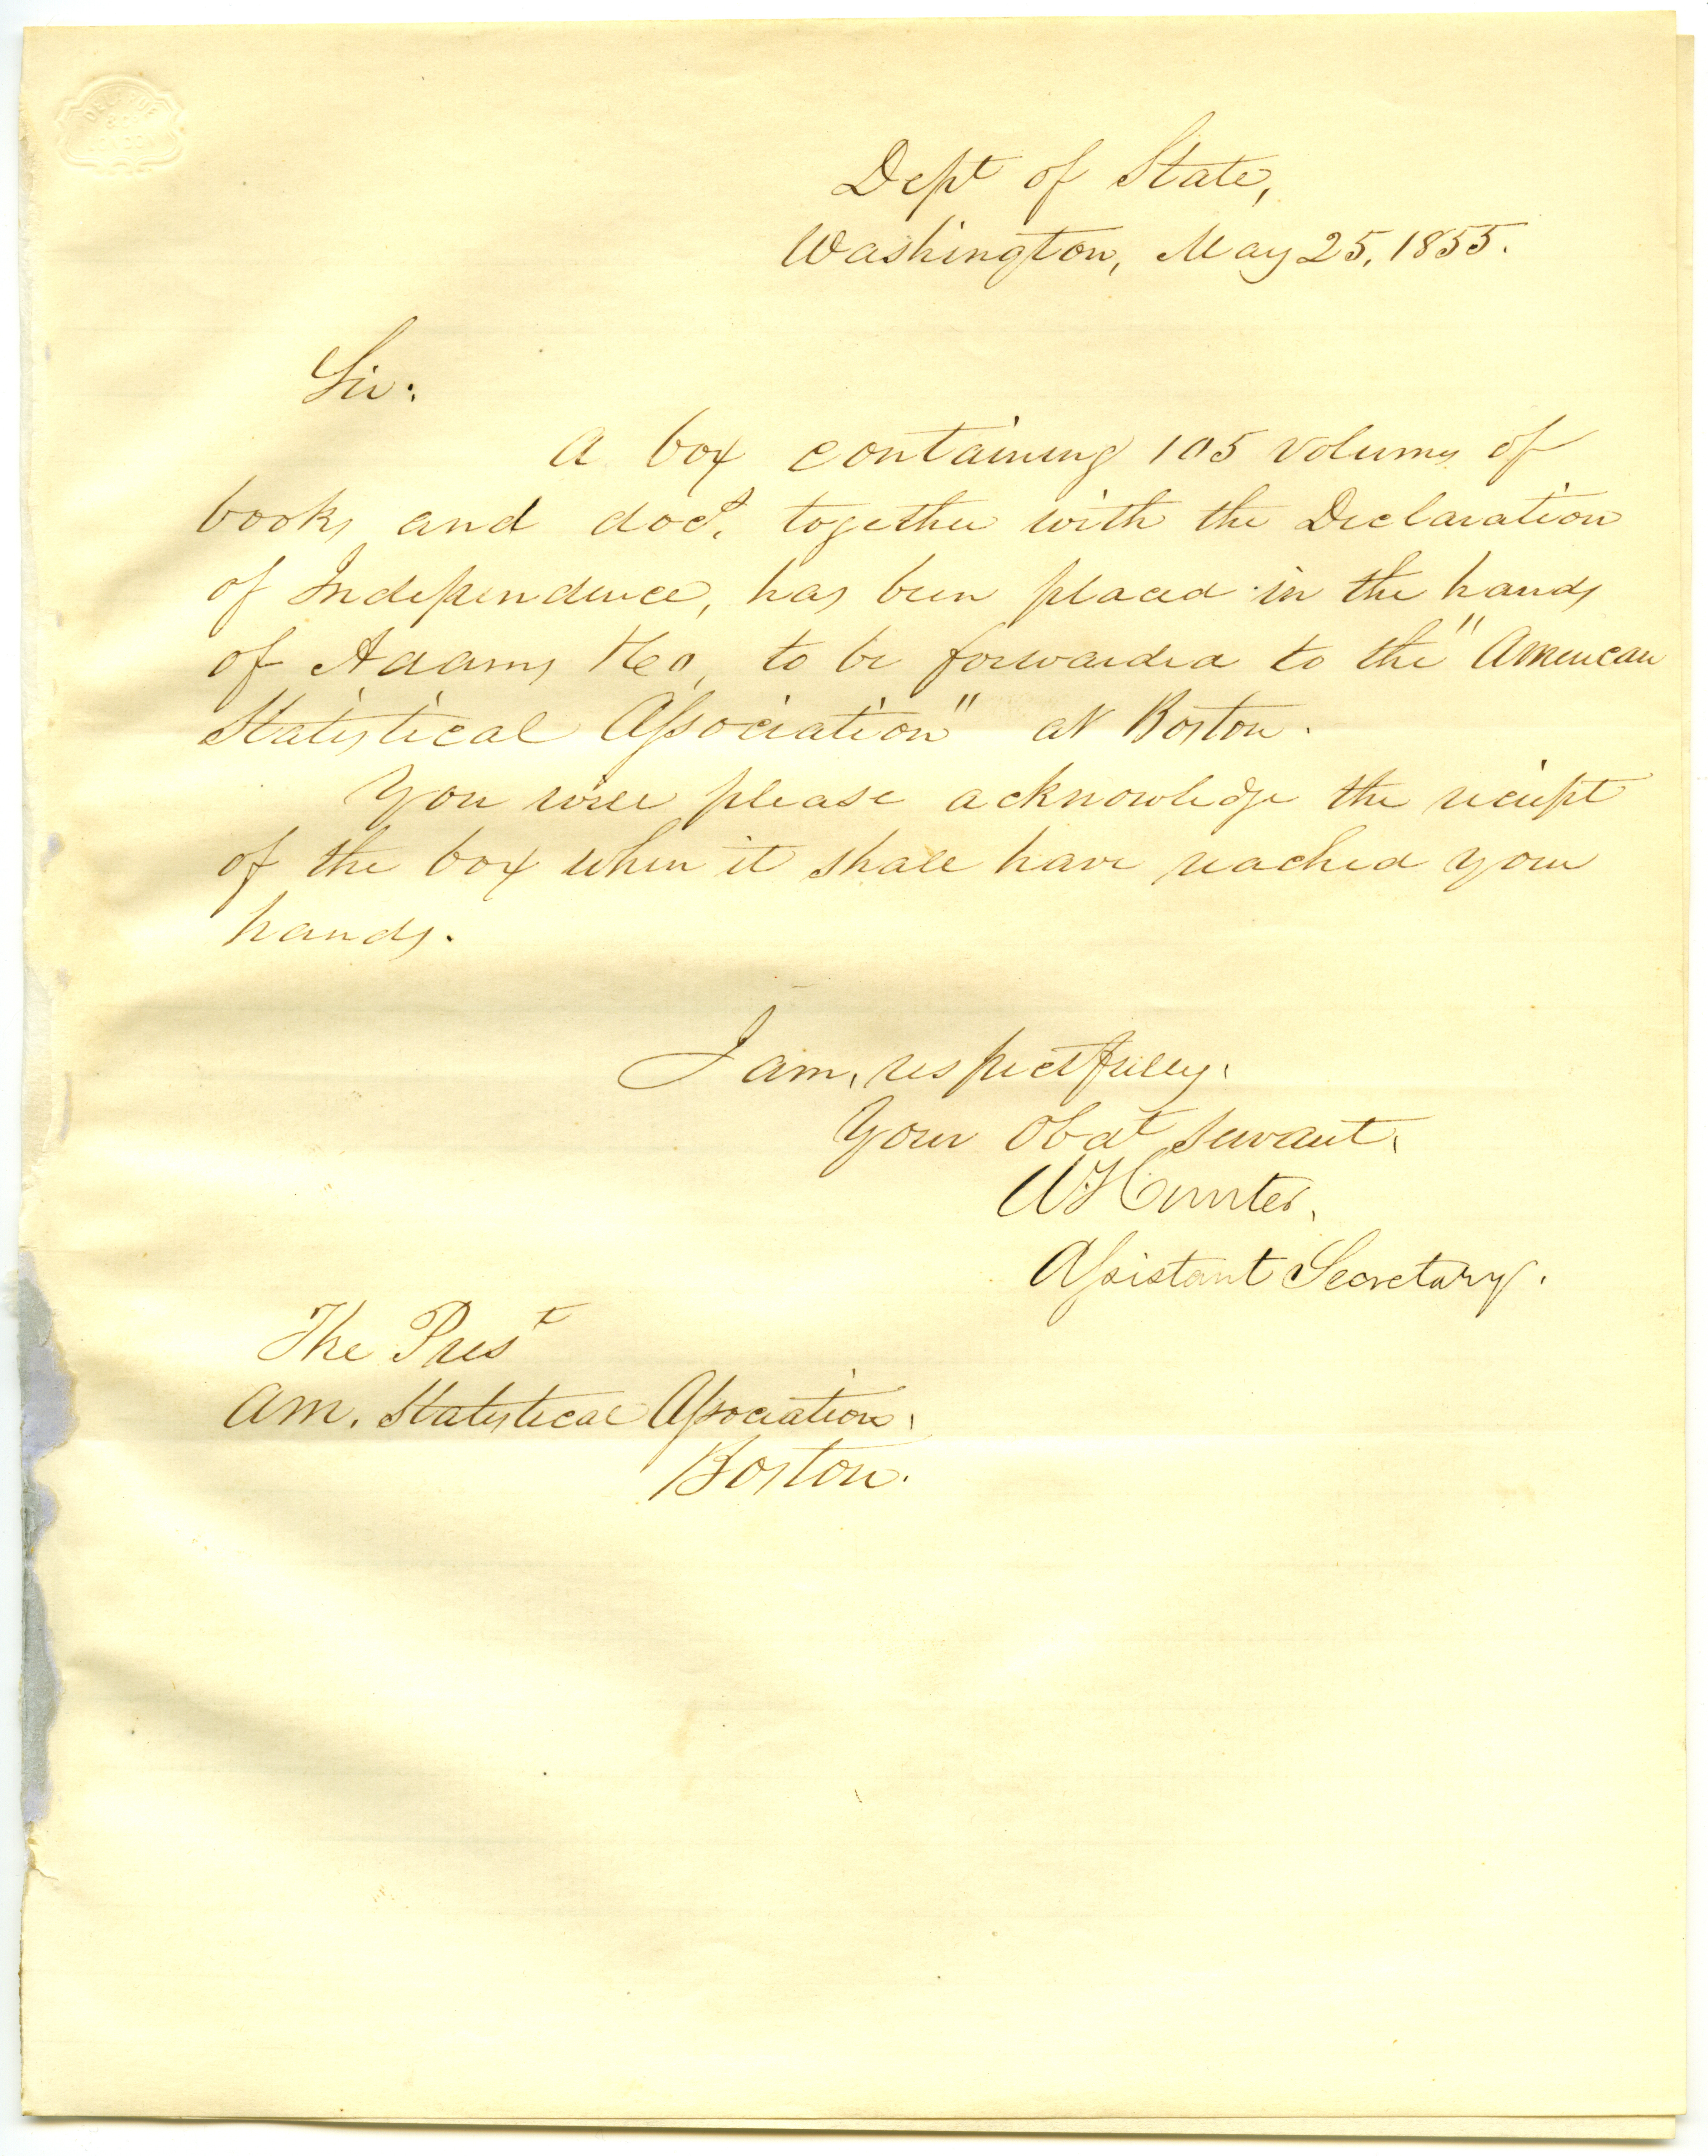 Dept of State,
Washington, May 25, 1855.
Sir:
A box containing 105 volumes of
books and docs. together with the Declaration
of Independence, has been placed in the hands
of Adams & Co, to be forwarded to the "American
Statistical Association" at Boston.
You will please acknowledge the receipt
of the box when it shall have reached your
hands.
I am, respectfully,
Your Obdt servant,
W Hunter,
Assistant Secretary.
The Prest
Am. Statistical Association,
Boston.